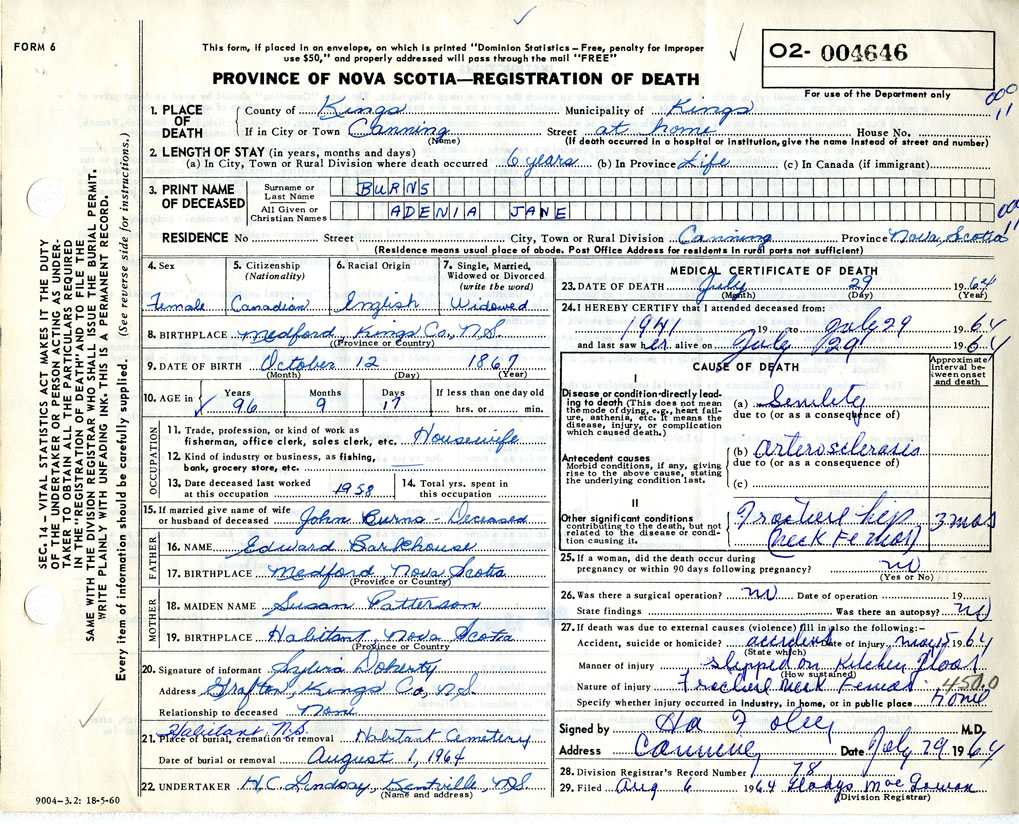 FORM 6
This form, if placed in an envelope, on which is printed "Dominion Statistics – Free, penalty for improper
use $50," and properly addressed will pass through the mail "FREE"
PROVINCE OF NOVA SCOTIA—REGISTRATION OF DEATH
O2- 004646
For use of the Department only
000
11
1. PLACE OF DEATH County of Kings Municipality of Kings
If in City or Town Canning Street at home House No.
(Name) (If death occurred in a hospital or institution, give the name instead of street and number)
2. LENGTH OF STAY (in years, months and days)
(a) In City, Town or Rural Division where death occurred 6 years (b) In Province Life (c) In Canada (if immigrant)
3. PRINT NAME OF DECEASED
Surname or Last Name BURNS
All Given or Christian Names ADENIA JANE
000
11
RESIDENCE No Street City, Town or Rural Division Canning Province Nova Scotia
(Residence means usual place of abode. Post Office Address for residents in rural parts not sufficient)
4. Sex Female
5. Citizenship (Nationality) Canadian
6. Racial Origin English
7. Single, Married, Widowed or Divorced (write the word) Widowed
8. BIRTHPLACE Medford, Kings Co, N.S.
(Province or Country)
9. DATE OF BIRTH October 12 1867
(Month) (Day) (Year)
10. AGE in Years 96 Months 9 Days 17 If less than one day old hrs. or min.
OCCUPATION
11. Trade, profession, or kind of work as fisherman, office clerk, sales clerk, etc. Housewife
12. Kind of industry or business, as fishing, bank, grocery store, etc. —
13. Date deceased last worked at this occupation 1958
14. Total yrs. spent in this occupation
15. If married give name of wife or husband of deceased John Burns - Deceased
FATHER
16. NAME Edward Barkhouse
17. BIRTHPLACE Medford, Nova Scotia
(Province or Country)
MOTHER
18. MAIDEN NAME Susan Patterson
19. BIRTHPLACE Habitant, Nova Scotia
(Province or Country)
20. Signature of informant Doherty
Address Grafton, Kings Co, N.S.
Relationship to deceased None
Habitant, N.S.
21. Place of burial, cremation or removal Habitant Cemetery
Date of burial or removal August 1, 1964
22. UNDERTAKER H.C. Lindsay, Kentville, N.S.
(Name and address)
MEDICAL CERTIFICATE OF DEATH
23. DATE OF DEATH July 29 1964
(Month) (Day) (Year)
24. I HEREBY CERTIFY that I attended deceased from:
1941 19 to July 29 1964
and last saw her alive on July 29 1964
CAUSE OF DEATH
Approximate interval between onset and death
I
Disease or condition directly leading to death (This does not mean the mode of dying, e.g., heart failure, asthenia, etc. It means the disease, injury, or complication which caused death.)
(a) Senility
due to (or as a consequence of)
Antecedent causes
Morbid conditions, if any, giving rise to the above cause, stating the underlying condition last.
(b) Arterosclerosis
due to (or as a consequence of)
(c)
II
Other significant conditions contributing to the death, but not related to the disease or condition causing it.
Fractured hip 3 mos
(neck Femur)
25. If a woman, did the death occur during pregnancy or within 90 days following pregnancy? no
(Yes or No)
26. Was there a surgical operation? no Date of operation 19
State findings Was there an autopsy? no
27. If death was due to external causes (violence) fill in also the following:-
Accident, suicide or homicide? accident Date of injury may 5 1964
(State which)
Manner of injury slipped on Kitchen floor
(How sustained)
450.0
Nature of injury Fractured neck Femur
Specify whether injury occurred in industry, in home, or in public place Home
Signed by Foley M.D.
Address Canning Date July 29 1964
28. Division Registrar's Record Number 78
29. Filed Aug 6 1964 Gladys MacGowan
(Division Registrar)
SEC. 14 – VITAL STATISTICS ACT MAKES IT THE DUTY
OF THE UNDERTAKER OR PERSON ACTING AS UNDER-
TAKER TO OBTAIN ALL THE PARTICULARS REQUIRED
IN THE "REGISTRATION OF DEATH" AND TO FILE THE
SAME WITH THE DIVISION REGISTRAR WHO SHALL ISSUE THE BURIAL PERMIT.
WRITE PLAINLY WITH UNFADING INK. THIS IS A PERMANENT RECORD.
Every item of information should be carefully supplied. (See reverse side for instructions.)
9004-3.2: 18-5-60